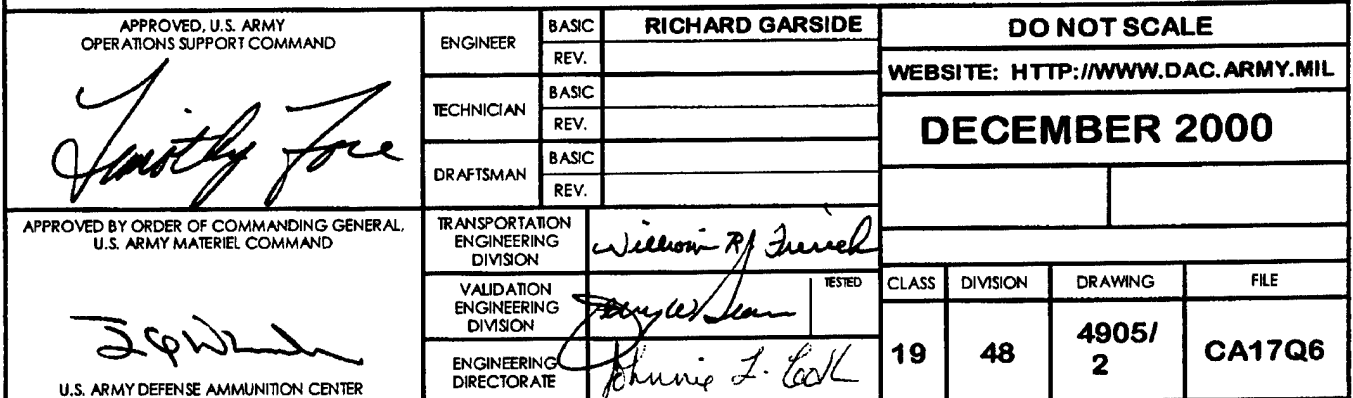 APPROVED, U.S. ARMY
OPERATIONS SUPPORT COMMAND
Timothy Fore
APPROVED BY ORDER OF COMMANDING GENERAL,
U.S. ARMY MATERIEL COMMAND
U.S. ARMY DEFENSE AMMUNITION CENTER
ENGINEER
BASIC
RICHARD GARSIDE
REV.
TECHNICIAN
BASIC
REV.
DRAFTSMAN
BASIC
REV.
TRANSPORTATION
ENGINEERING
DIVISION
William R
VALIDATION
ENGINEERING
DIVISION
TESTED
ENGINEERING
DIRECTORATE
DO NOT SCALE
WEBSITE: HTTP://WWW.DAC.ARMY.MIL
DECEMBER 2000
CLASS DIVISION DRAWING FILE
19 48 4905/ CA17Q6
2